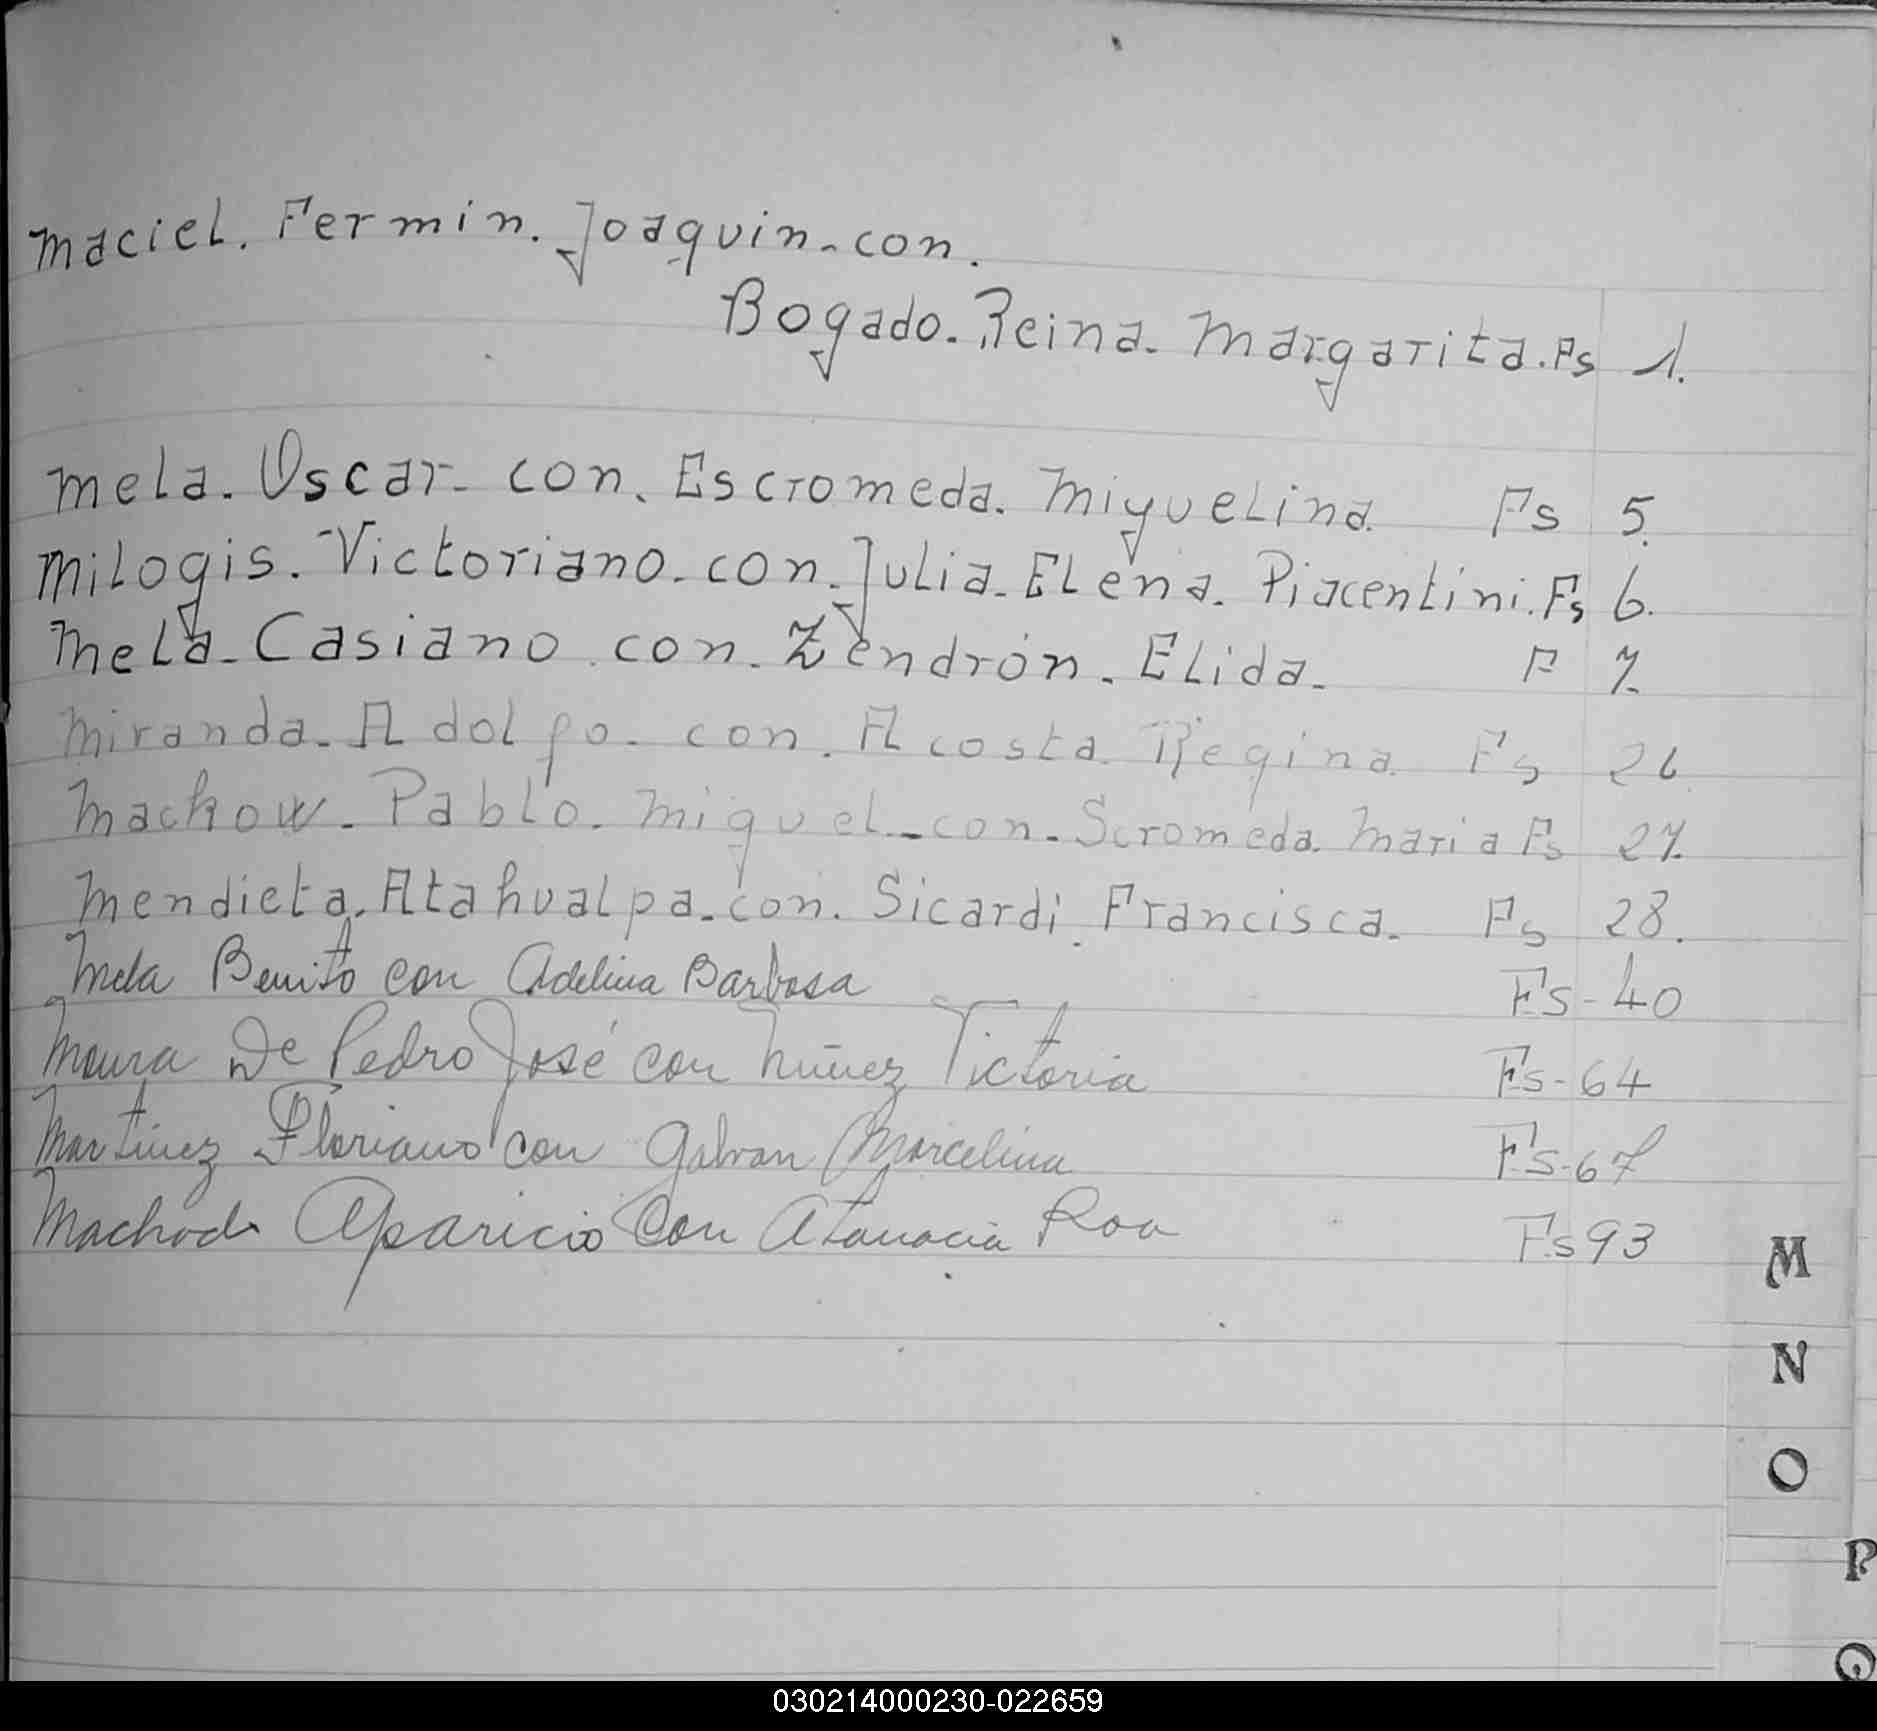 Maciel. Fermin. Joaquin-con.
Bogado. Reina. Margarita. Fs 1.
Mela. Oscar- con. Escromeda. Miguelina. Fs 5.
Milogis. Victoriano-con. Julia. Elena. Piacentini. Fs 6.
Mela- Casiano. con. Zendrón. Elida. F 7.
Miranda. Adolfo- con. Acosta. Regina. Fs 26
Machow. Pablo. Miguel-con. Scromeda. Maria Fs 27.
Mendieta. Atahualpa-con. Sicardi. Francisca. Fs 28.
Mela Benito con Adelina Barbosa Fs-40
Moura De Pedro José con Núñez Victoria Fs-64
Martinez Floriano con Galvan Marcelina Fs-67
Machado Aparicio Con Atanacia Roa Fs 93
M
N
O
P
Q
030214000230-022659